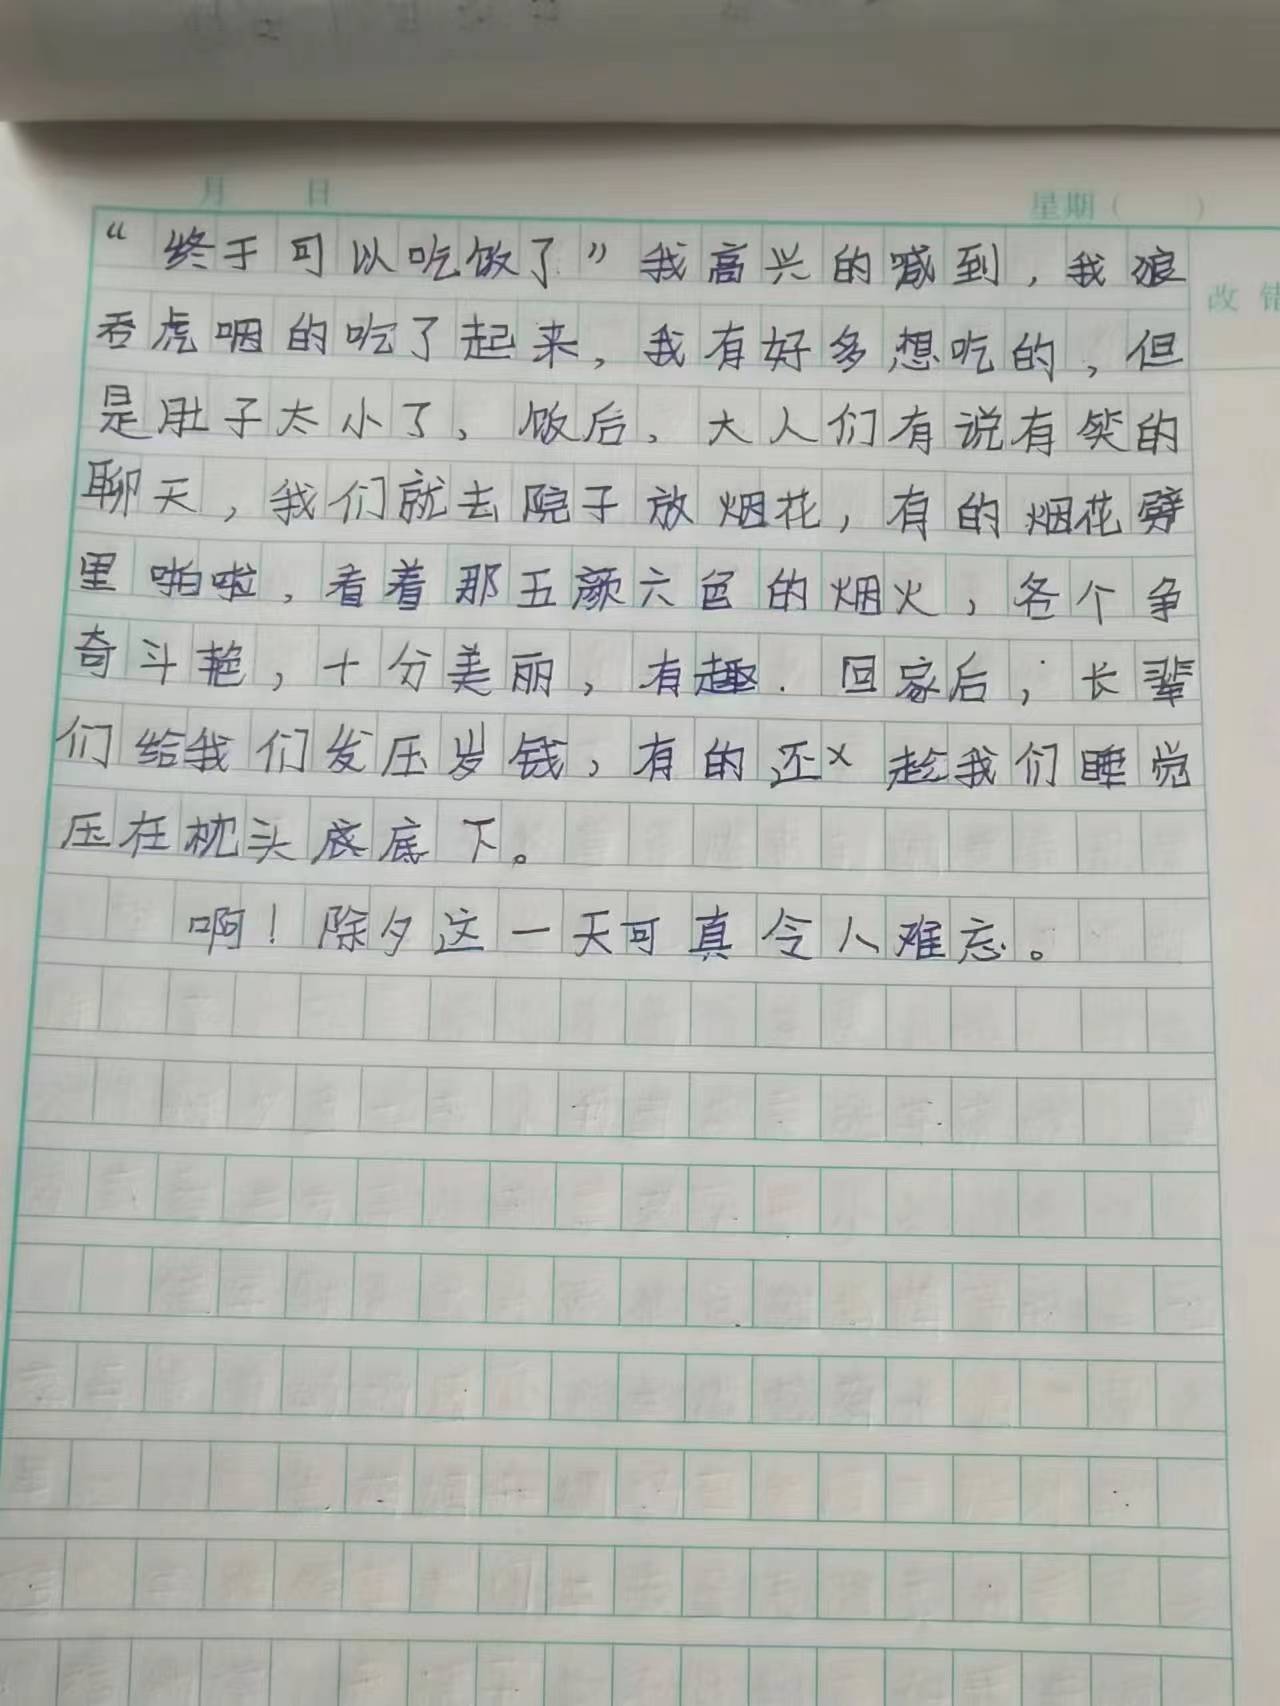 月 日 星期（ ）
“终于可以吃饭了”我高兴的喊到，我狼
改错
吞虎咽的吃了起来，我有好多想吃的，但
是肚子太小了，饭后，大人们有说有笑的
聊天，我们就去院子放烟花，有的烟花劈
里啪啦，看着那五颜六色的烟火，各个争
奇斗艳，十分美丽，有趣．回家后，长辈
们给我们发压岁钱，有的还×趁我们睡觉
压在枕头底底下。
啊！除夕这一天可真令人难忘。